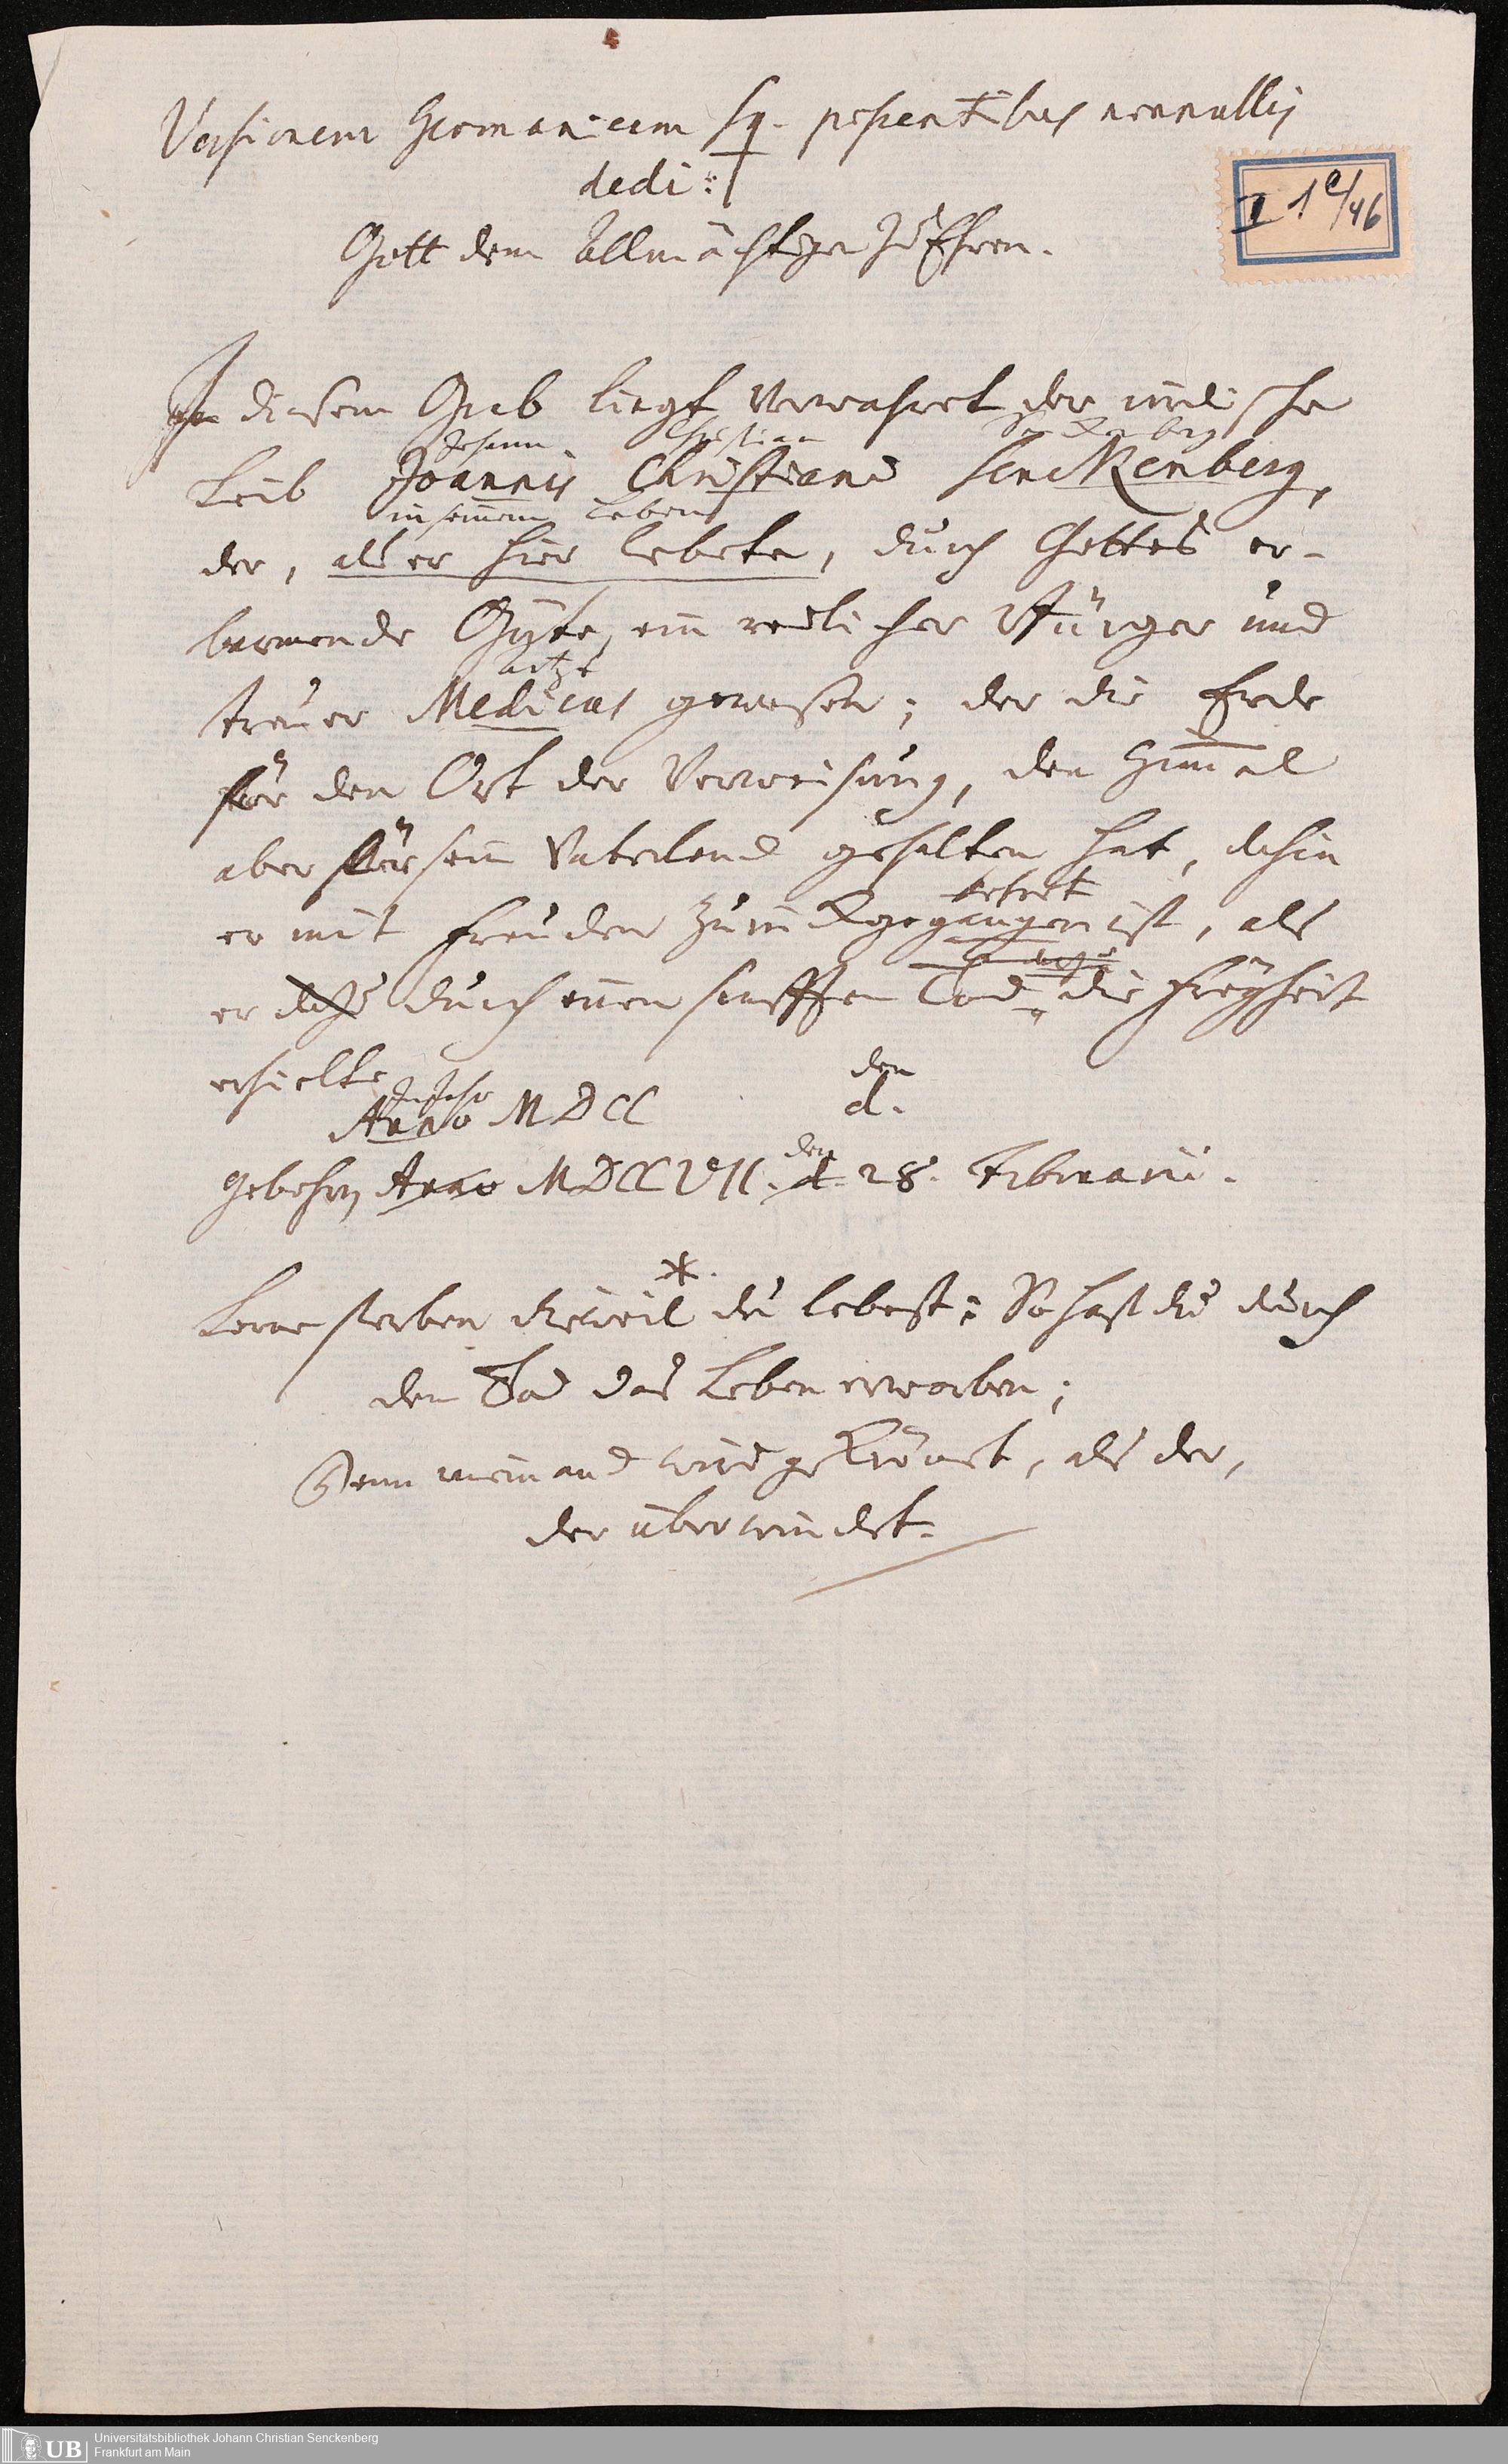 Versionem Germanicam sq. poscentibus nonnullis
dedi:
I 1 c/46
Gott dem Allmächtigen zu Ehren.
In diesem Grab liegt verwahret der irdische
Johann Christian Senckenberg
Leib Joannis Christiani Senckenberg,
in seinem Leben
der, als er hier lebete, durch Gottes er-
barmende Güte, ein redlicher Bürger und
artzt
treuer Medicus gewesen; der die Erde
für den Ort der Verweisung, den Himmel
aber für sein Vaterland gehalten hat, dahin
kehret
er mit Freuden zurückgegangen ist, als
er durch einen sanfften Tod die Freyheit
erhielte
Im Jahr den
Anno MDCC d.
den
gebohrn Anno MDCCVII. d. 28. Februarii.
*
Lerne sterben dieweil du lebest: So hast du durch
den Tod das Leben erworben;
Denn niemand wird gekrönet, als der,
der überwindet.
UB
Universitätsbibliothek Johann Christian Senckenberg
Frankfurt am Main